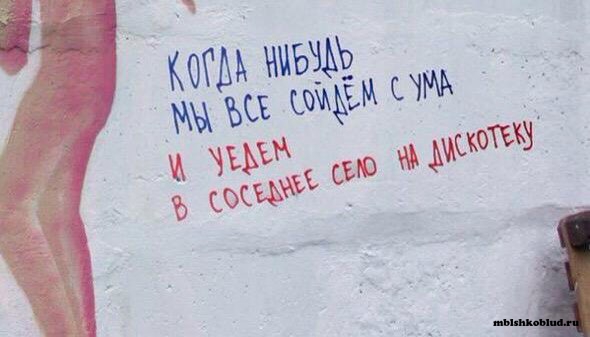 КОГДА НИБУДЬ
МЫ ВСЕ СОЙДЁМ С УМА
И УЕДЕМ
В СОСЕДНЕЕ СЕЛО НА ДИСКОТЕКУ
mblshkoblud.ru